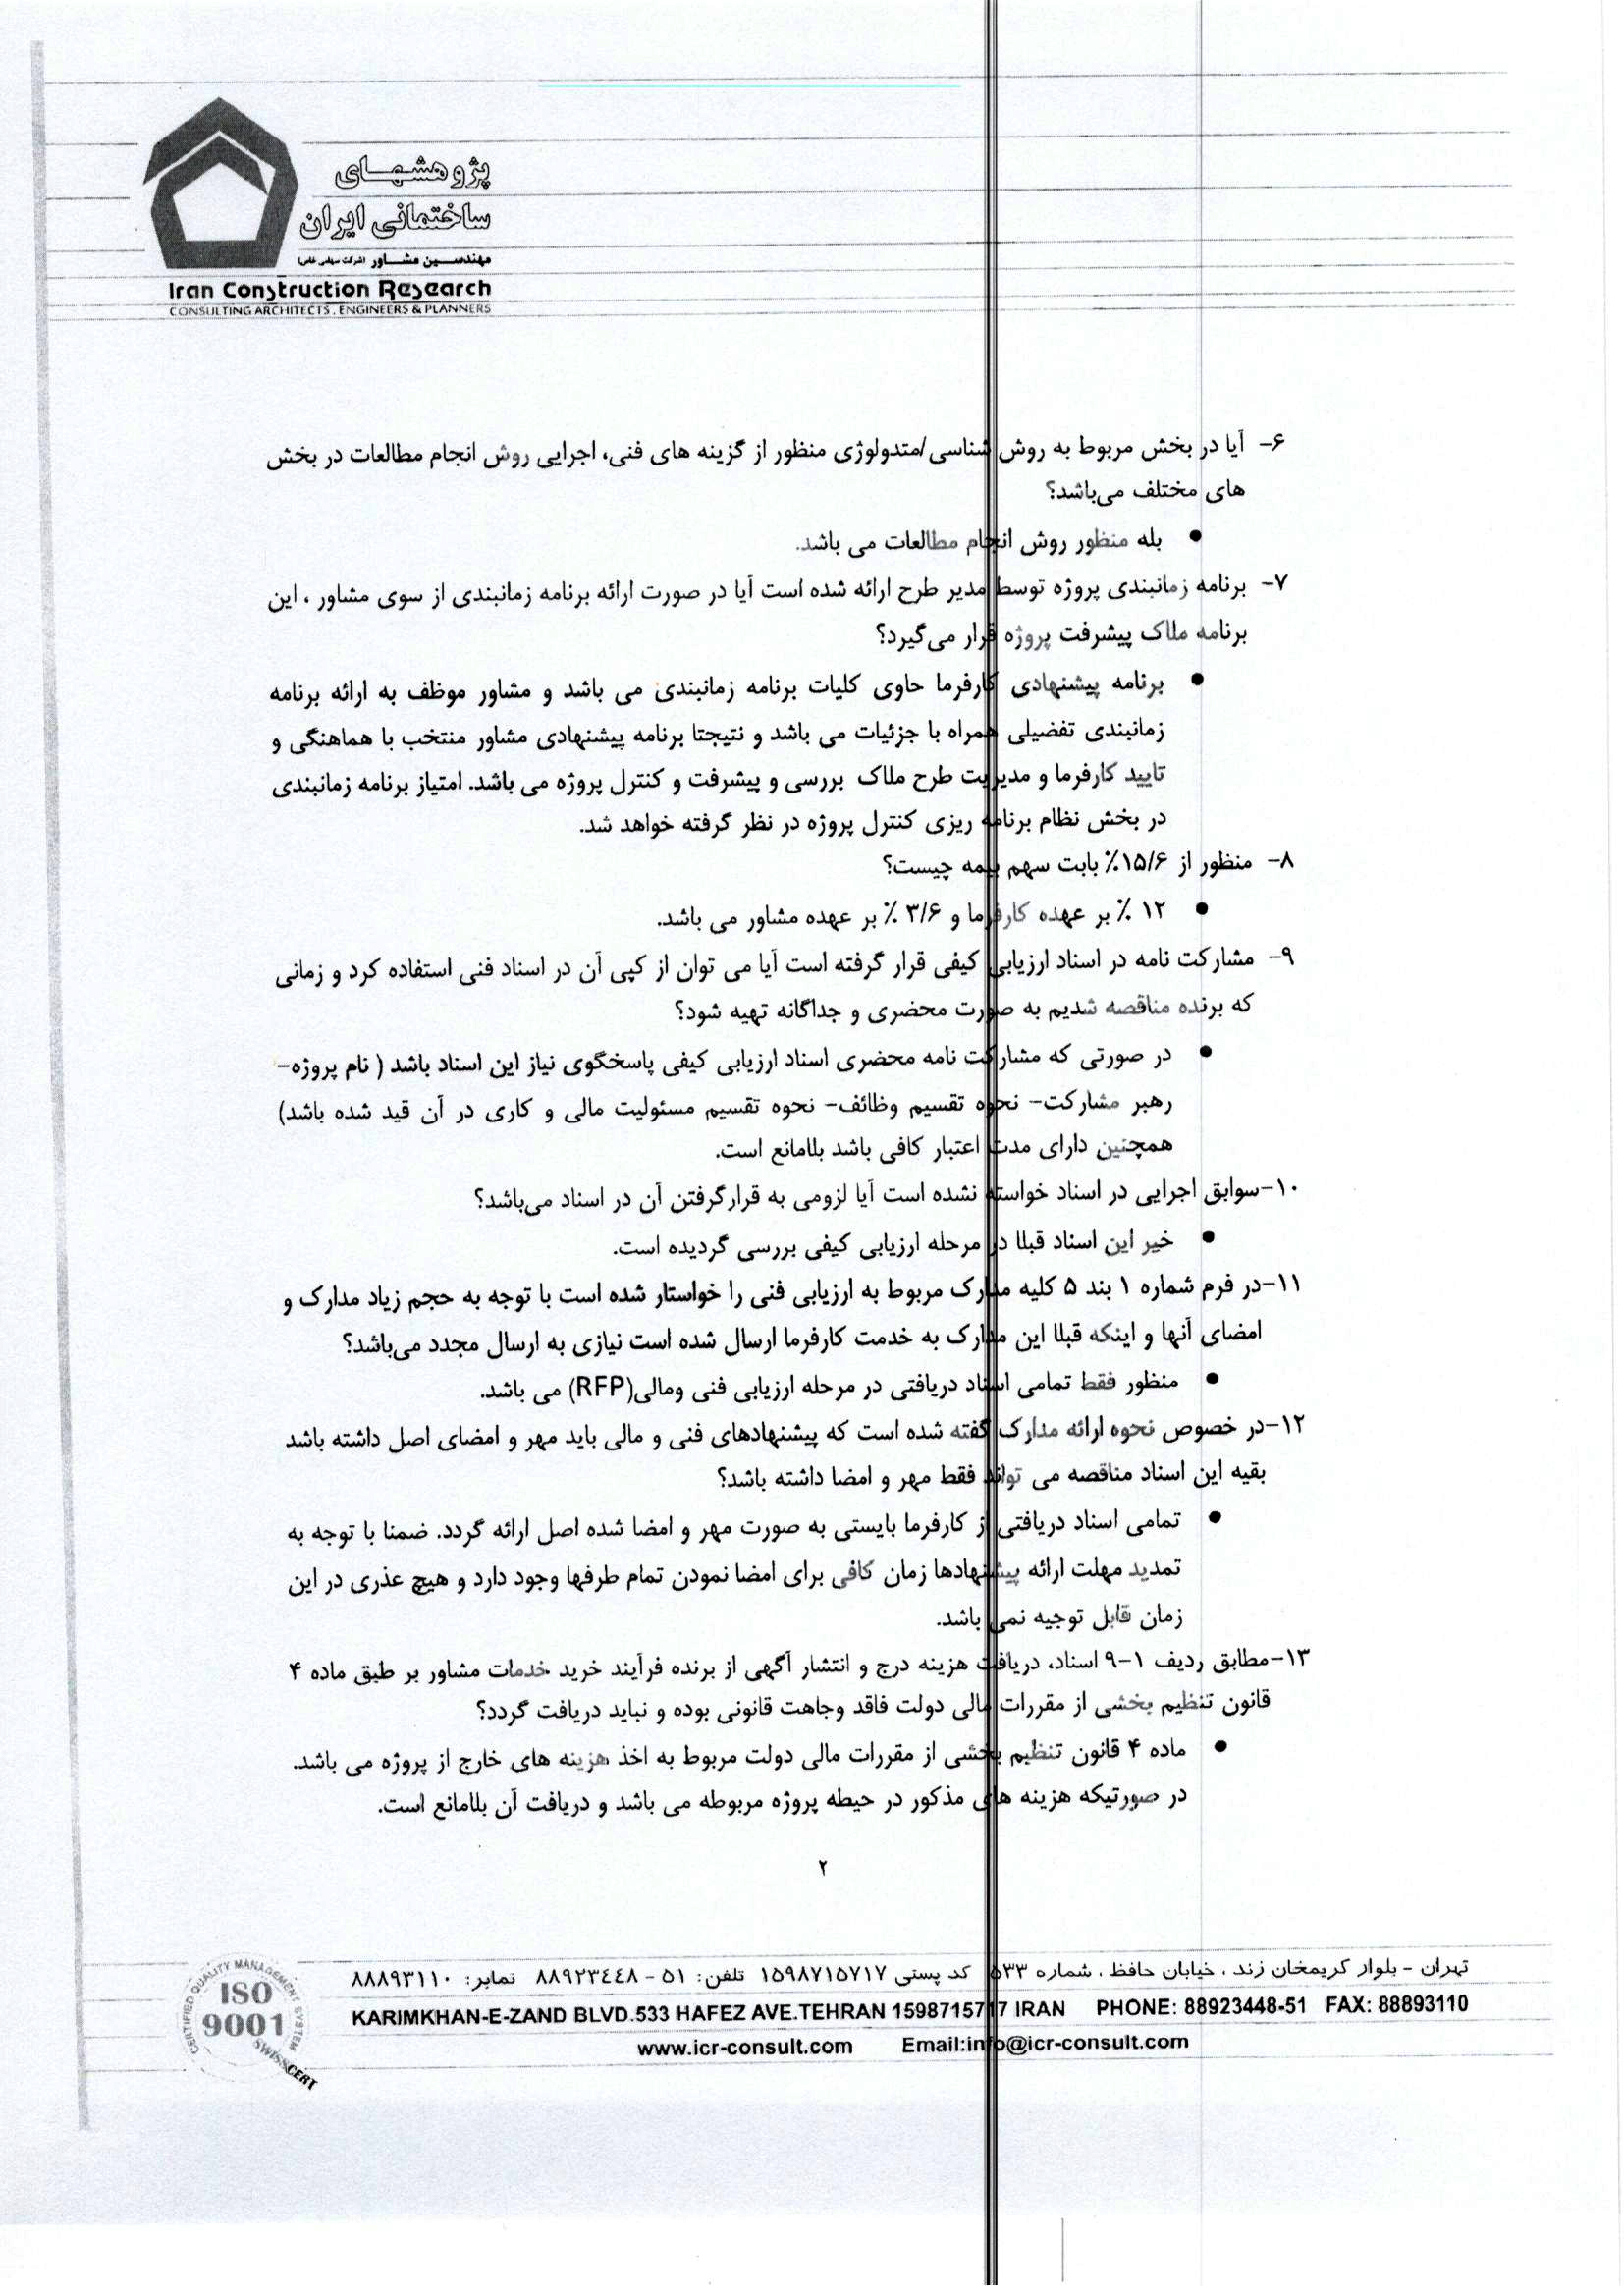 پژوهشهای
ساختمانی ایران
مهندسین مشاور (شرکت سهامی خاص)
Iran Construction Research
CONSULTING ARCHITECTS, ENGINEERS & PLANNERS
۶- آیا در بخش مربوط به روش شناسی/متدولوژی منظور از گزینه های فنی، اجرایی روش انجام مطالعات در بخش
های مختلف می‌باشد؟
● بله منظور روش انجام مطالعات می باشد.
۷- برنامه زمانبندی پروژه توسط مدیر طرح ارائه شده است آیا در صورت ارائه برنامه زمانبندی از سوی مشاور ، این
برنامه ملاک پیشرفت پروژه قرار می‌گیرد؟
● برنامه پیشنهادی کارفرما حاوی کلیات برنامه زمانبندی می باشد و مشاور موظف به ارائه برنامه
زمانبندی تفضیلی همراه با جزئیات می باشد و نتیجتا برنامه پیشنهادی مشاور منتخب با هماهنگی و
تایید کارفرما و مدیریت طرح ملاک بررسی و پیشرفت و کنترل پروژه می باشد. امتیاز برنامه زمانبندی
در بخش نظام برنامه ریزی کنترل پروژه در نظر گرفته خواهد شد.
۸- منظور از ۱۵/۶٪ بابت سهم بیمه چیست؟
● ۱۲ ٪ بر عهده کارفرما و ۳/۶ ٪ بر عهده مشاور می باشد.
۹- مشارکت نامه در اسناد ارزیابی کیفی قرار گرفته است آیا می توان از کپی آن در اسناد فنی استفاده کرد و زمانی
که برنده مناقصه شدیم به صورت محضری و جداگانه تهیه شود؟
● در صورتی که مشارکت نامه محضری اسناد ارزیابی کیفی پاسخگوی نیاز این اسناد باشد ( نام پروژه-
رهبر مشارکت- نحوه تقسیم وظائف- نحوه تقسیم مسئولیت مالی و کاری در آن قید شده باشد)
همچنین دارای مدت اعتبار کافی باشد بلامانع است.
۱۰-سوابق اجرایی در اسناد خواسته نشده است آیا لزومی به قرارگرفتن آن در اسناد می‌باشد؟
● خیر این اسناد قبلا در مرحله ارزیابی کیفی بررسی گردیده است.
۱۱-در فرم شماره ۱ بند ۵ کلیه مدارک مربوط به ارزیابی فنی را خواستار شده است با توجه به حجم زیاد مدارک و
امضای آنها و اینکه قبلا این مدارک به خدمت کارفرما ارسال شده است نیازی به ارسال مجدد می‌باشد؟
● منظور فقط تمامی اسناد دریافتی در مرحله ارزیابی فنی ومالی(RFP) می باشد.
۱۲-در خصوص نحوه ارائه مدارک گفته شده است که پیشنهادهای فنی و مالی باید مهر و امضای اصل داشته باشد
بقیه این اسناد مناقصه می تواند فقط مهر و امضا داشته باشد؟
● تمامی اسناد دریافتی از کارفرما بایستی به صورت مهر و امضا شده اصل ارائه گردد. ضمنا با توجه به
تمدید مهلت ارائه پیشنهادها زمان کافی برای امضا نمودن تمام طرفها وجود دارد و هیچ عذری در این
زمان قابل توجیه نمی باشد.
۱۳-مطابق ردیف ۱-۹ اسناد، دریافت هزینه درج و انتشار آگهی از برنده فرآیند خرید خدمات مشاور بر طبق ماده ۴
قانون تنظیم بخشی از مقررات مالی دولت فاقد وجاهت قانونی بوده و نباید دریافت گردد؟
● ماده ۴ قانون تنظیم بخشی از مقررات مالی دولت مربوط به اخذ هزینه های خارج از پروژه می باشد.
در صورتیکه هزینه های مذکور در حیطه پروژه مربوطه می باشد و دریافت آن بلامانع است.
۲
تهران - بلوار کریمخان زند ، خیابان حافظ ، شماره ۵۳۳ کد پستی ۱۵۹۸۷۱۵۷۱۷ تلفن: ۵۱ - ۸۸۹۲۳٤٤۸ نمابر: ۸۸۸۹۳۱۱۰
KARIMKHAN-E-ZAND BLVD.533 HAFEZ AVE.TEHRAN 1598715717 IRAN PHONE: 88923448-51 FAX: 88893110
www.icr-consult.com Email:info@icr-consult.com
CERTIFIED QUALITY MANAGEMENT SYSTEM
ISO
9001
SWISSCERT